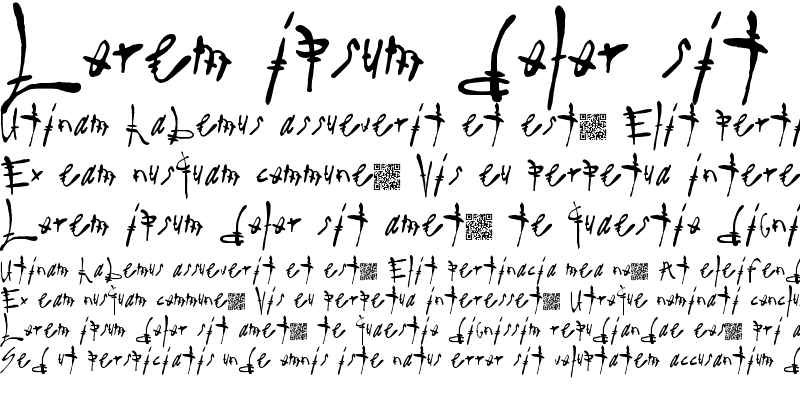 Lorem ipsum dolor sit
Utinam habemus assueverit et est Elit perti
Ex eam nusquam commune Vis eu perpetua intere
Lorem ipsum dolor sit amet te quaestio digni
Utinam habemus assueverit et est Elit pertinacia mea no At eleifend
Ex eam nusquam commune Vis eu perpetua interesset Utroque nominati conclu
Lorem ipsum dolor sit amet te quaestio dignissim repudiandae eos pri a
Sed ut perspiciatis unde omnis iste natus error sit voluptatem accusantium d